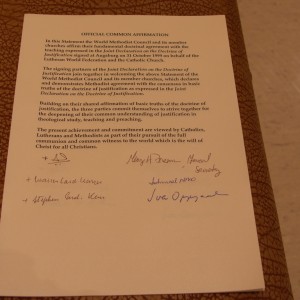 OFFICIAL COMMON AFFIRMATION
In this Statement the World Methodist Council and its member
churches affirm their fundamental doctrinal agreement with the
teaching expressed in the Joint Declaration on the Doctrine of
Justification signed at Augsburg on 31 October 1999 on behalf of the
Lutheran World Federation and the Catholic Church.
The signing partners of the Joint Declaration on the Doctrine of
Justification join together in welcoming the above Statement of the
World Methodist Council and its member churches, which declares
and demonstrates Methodist agreement with the consensus in basic
truths of the doctrine of justification as expressed in the Joint
Declaration on the Doctrine of Justification.
Building on their shared affirmation of basic truths of the doctrine of
justification, the three parties commit themselves to strive together for
the deepening of their common understanding of justification in
theological study, teaching and preaching.
The present achievement and commitment are viewed by Catholics,
Lutherans and Methodists as part of their pursuit of the full
communion and common witness to the world which is the will of
Christ for all Christians.
General
Secretary
+ Walter Card. Kasper
+ Stephen Card. Kim